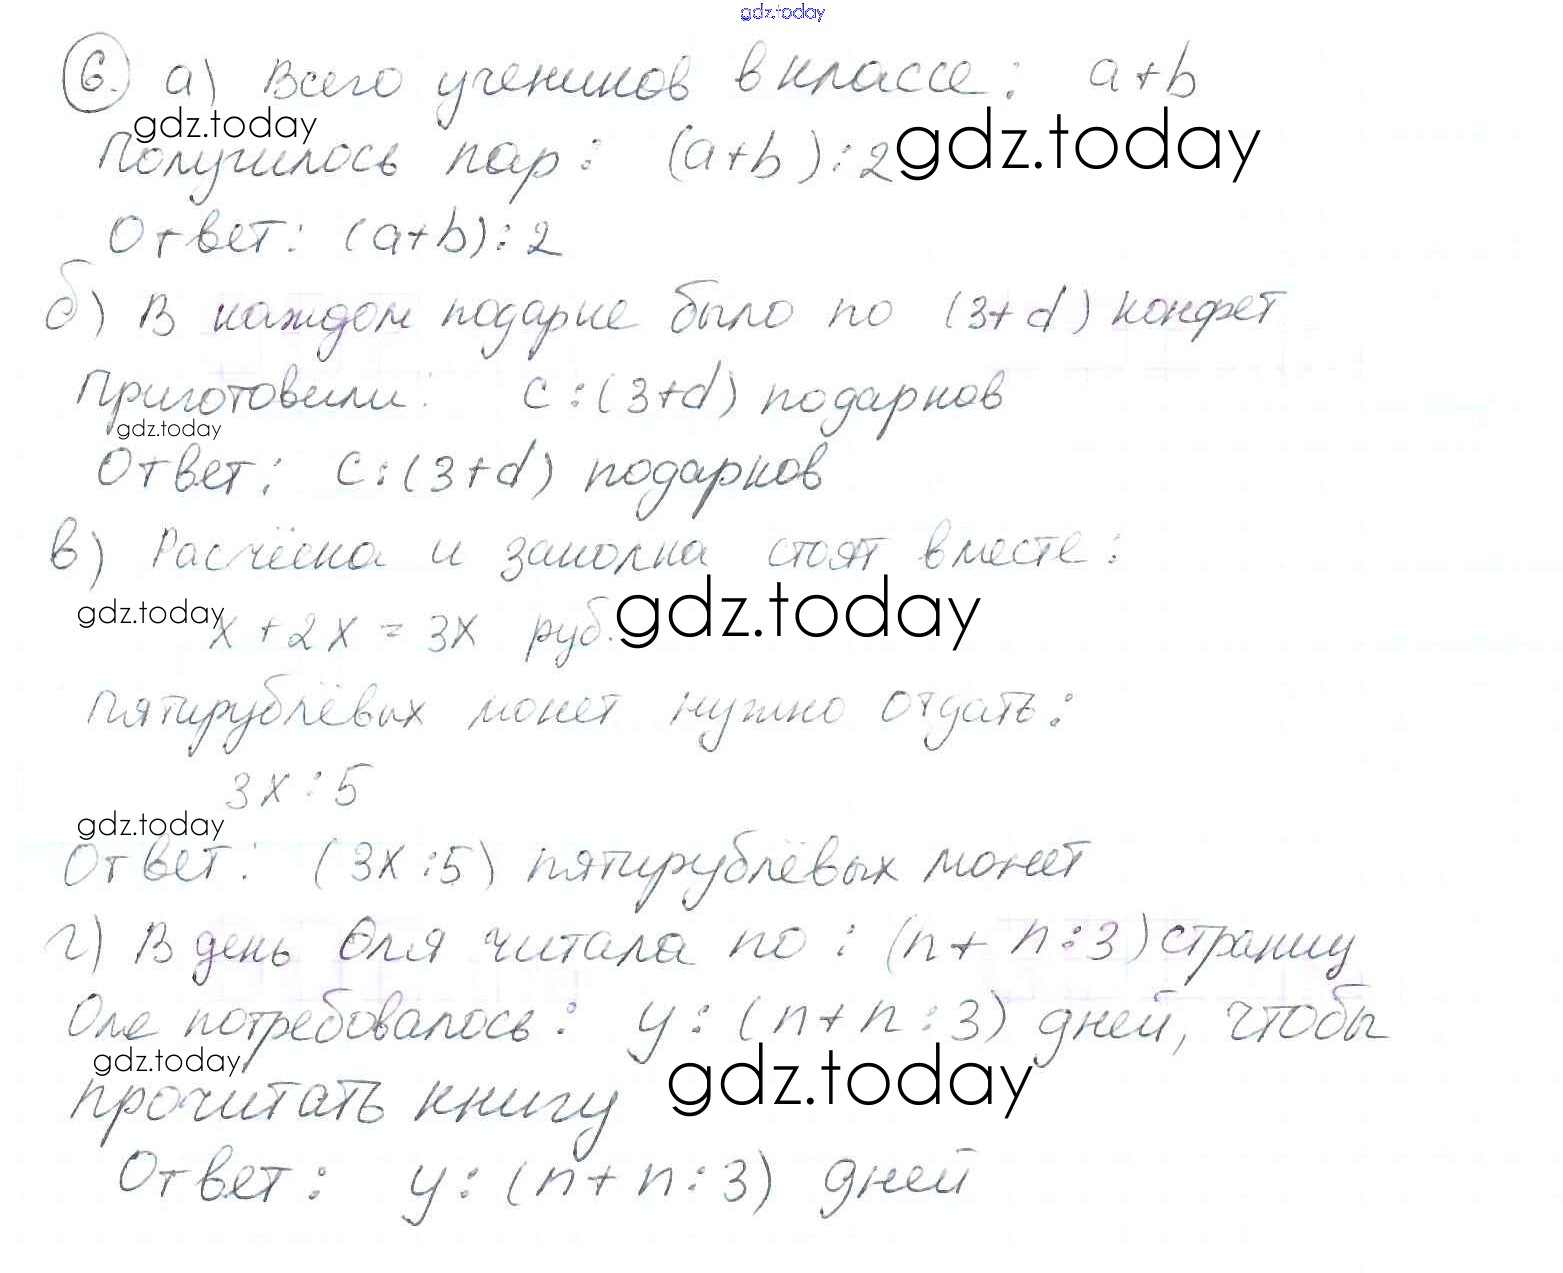 gdz.today
6. а) Всего учеников в классе: a+b
gdz.today
Получилось пар: (a+b):2 gdz.today
Ответ: (a+b):2
б) В каждом подарке было по (3+d) конфет
Приготовили: c:(3+d) подарков
gdz.today
Ответ: c:(3+d) подарков
в) Расчёска и заколка стоят вместе:
gdz.today x+2x=3x руб. gdz.today
Пятирублёвых монет нужно отдать:
3x:5
gdz.today
Ответ: (3x:5) пятирублёвых монет
г) В день Оля читала по: (n+n:3) страниц
Оле потребовалось: y:(n+n:3) дней, чтобы
gdz.today
прочитать книгу gdz.today
Ответ: y:(n+n:3) дней